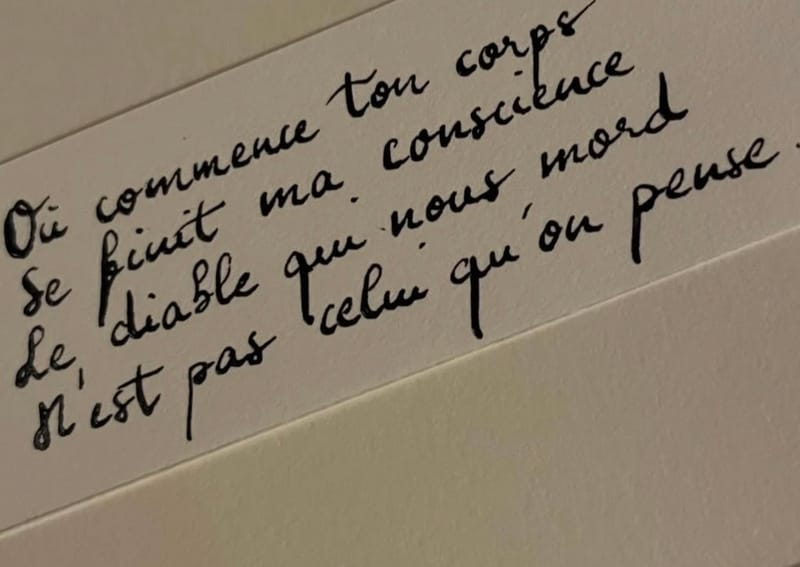 Où commence ton corps
Se finit ma conscience
Le diable qui nous mord
N'est pas celui qu'on pense.